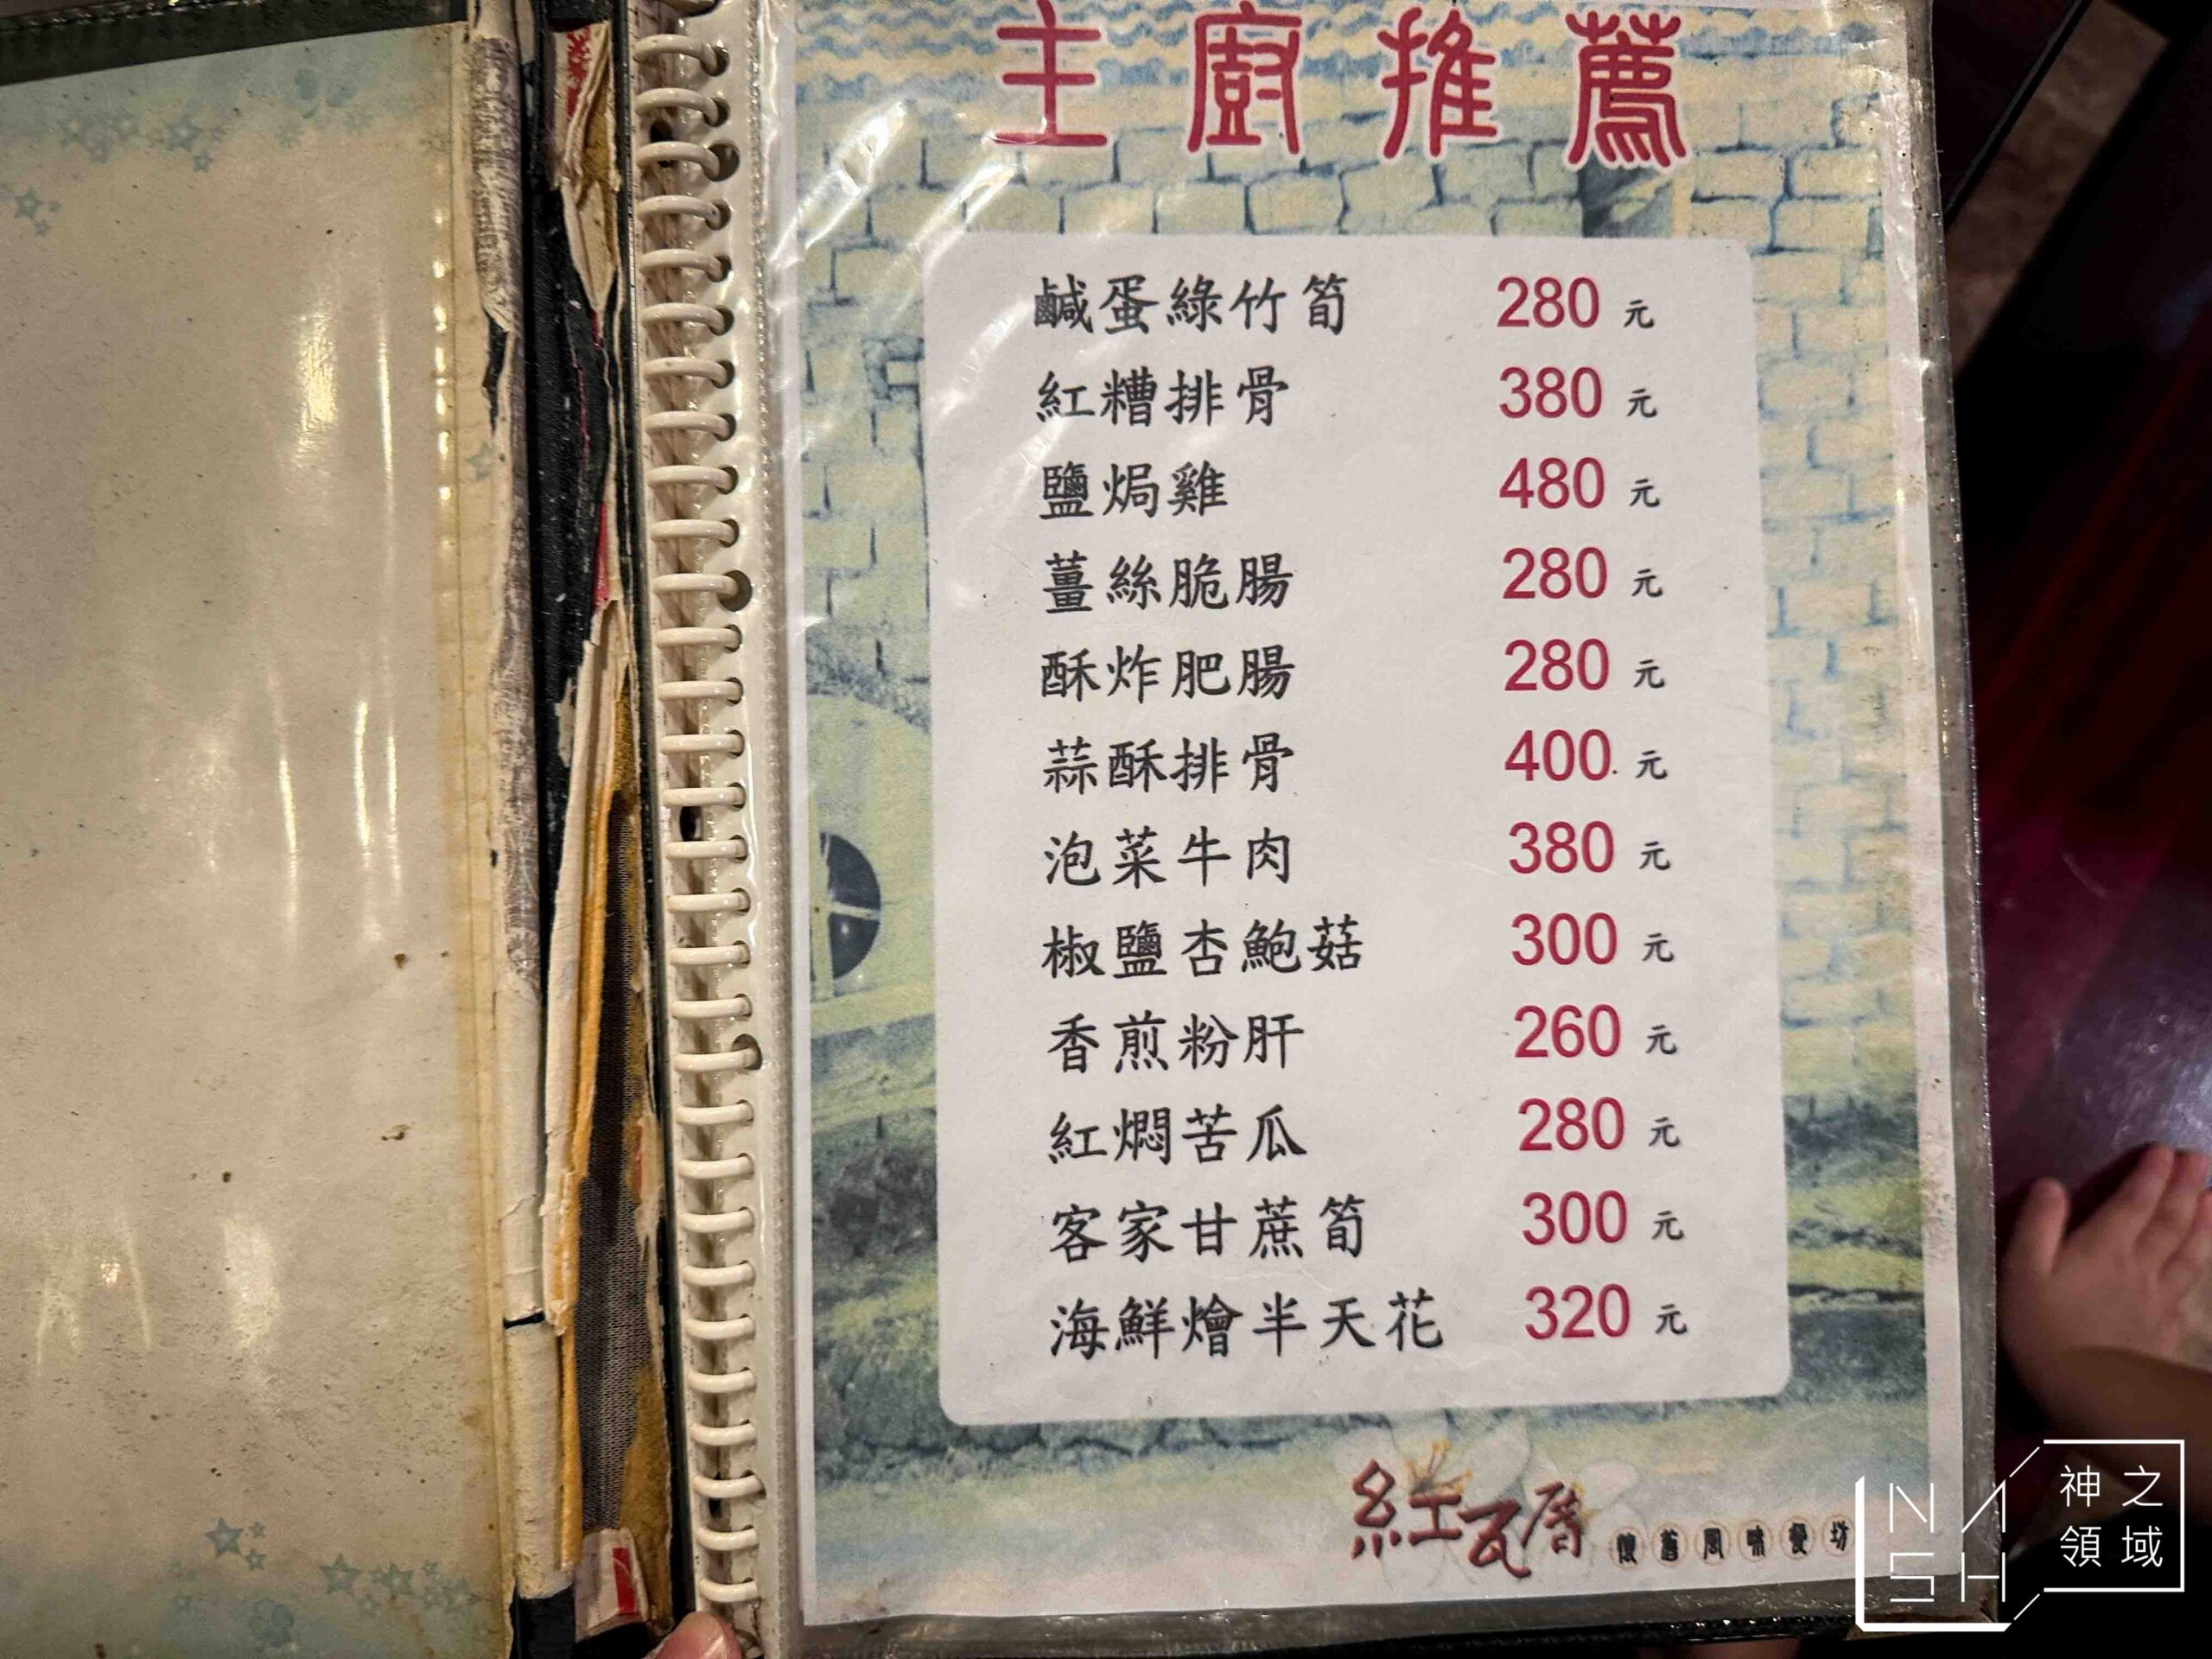 主廚推薦
鹹蛋綠竹筍 280 元
紅糟排骨 380 元
鹽焗雞 480 元
薑絲脆腸 280 元
酥炸肥腸 280 元
蒜酥排骨 400 元
泡菜牛肉 380 元
椒鹽杏鮑菇 300 元
香煎粉肝 260 元
紅燜苦瓜 280 元
客家甘蔗筍 300 元
海鮮燴半天花 320 元
紅瓦厝 懷舊風味餐坊
NASH 神之領域